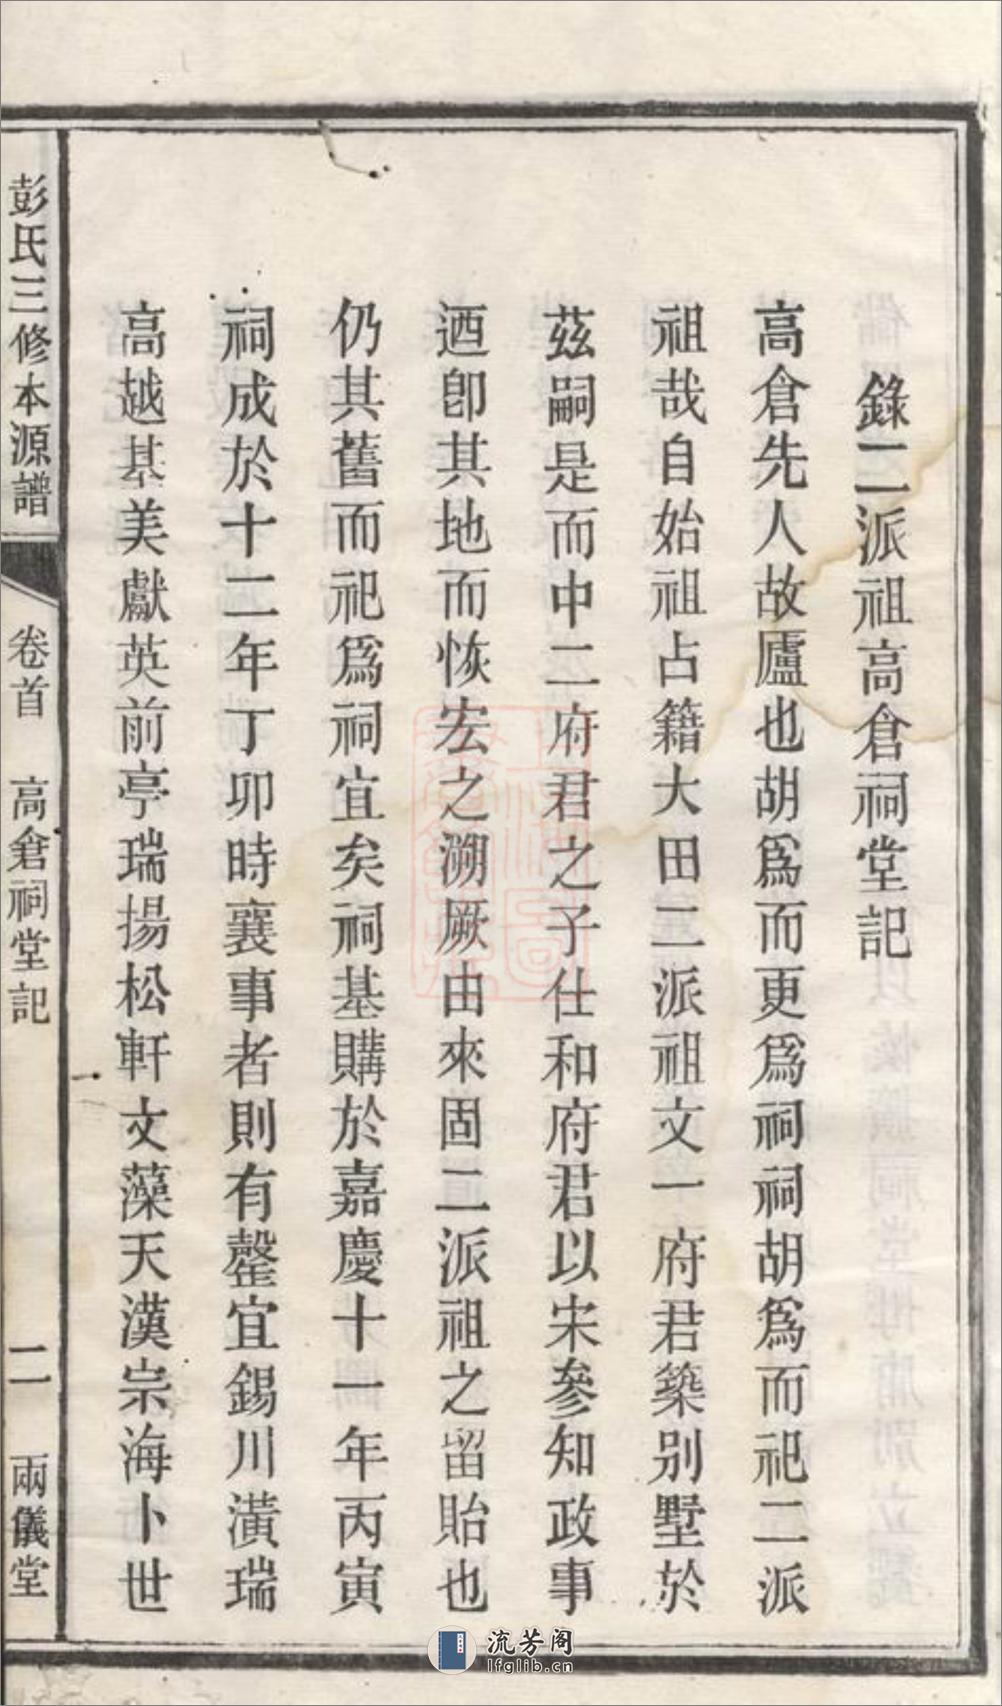 錄二派祖高倉祠堂記
高倉先人故廬也胡爲而更爲祠祠胡爲而祀二派
祖哉自始祖占籍大田二派祖文一府君築别墅於
茲嗣是而中二府君之子仕和府君以宋參知政事
迺卽其地而恢宏之溯厥由來固二派祖之留貽也
仍其舊而祀爲祠宜矣祠基購於嘉慶十一年丙寅
祠成於十二年丁卯時襄事者則有罄宜錫川潢瑞
高越基美獻英前亭瑞揚松軒文藻天漢宗海卜世
彭氏三修本源譜
卷首
高倉祠堂記
二
兩儀堂
流芳阁
lfglib.cn